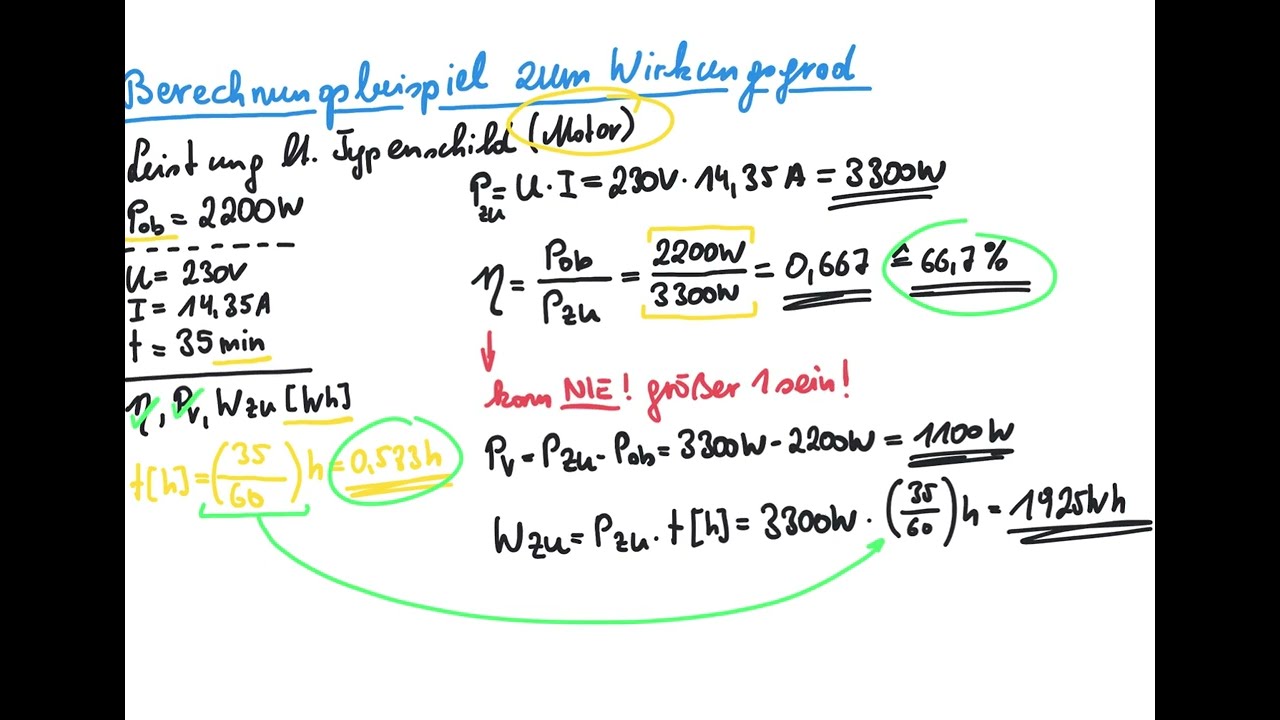 Berechnungsbeispiel zum Wirkungsgrad
Leistung lt. Typenschild (Motor)
Pab = 2200W
U = 230V
I = 14,35A
t = 35min
η, Pv, Wzu [Wh]
t[h] = (35/60)h = 0,583h
Pzu = U · I = 230V · 14,35A = 3300W
η = Pab/Pzu = 2200W/3300W = 0,667 ≙ 66,7%
kann NIE! größer 1 sein!
Pv = Pzu - Pab = 3300W - 2200W = 1100W
Wzu = Pzu · t[h] = 3300W · (35/60)h = 1925Wh